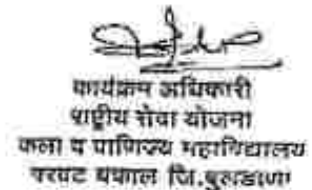 कार्यक्रम अधिकारी
राष्ट्रीय सेवा योजना
कला व वाणिज्य महाविद्यालय
वरवट बकाल जि.बुलढाणा